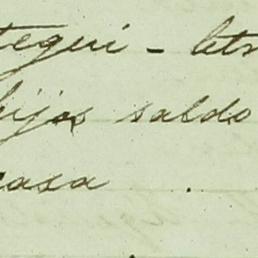 tegui - letr
hijos saldo
casa .